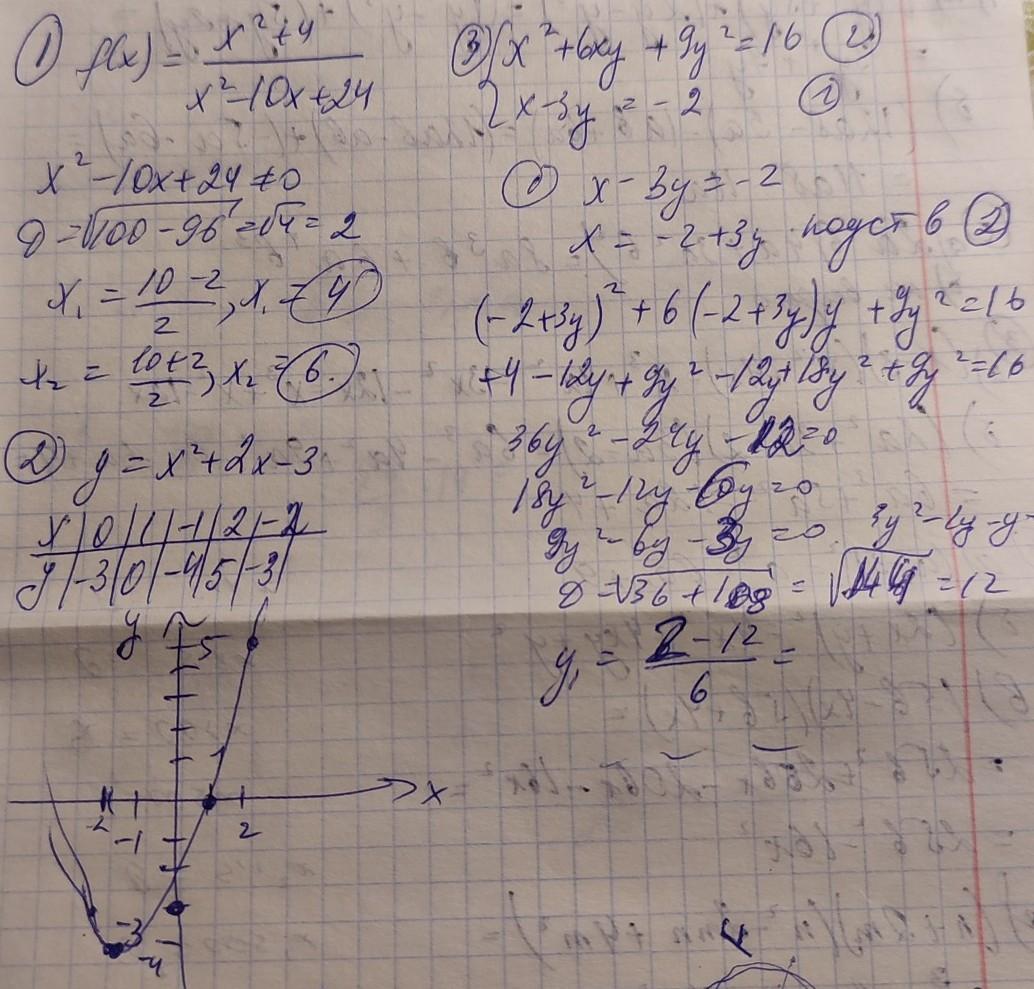 ① f(x) = x²+4 / x²-10x+24
x²-10x+24≠0
D=√100-96=√4=2
x₁ = 10-2 / 2, x₁=4
x₂ = 10+2 / 2, x₂=6.
② y = x²+2x-3
x | 0 | 1 | -1 | 2 | -2
y | -3 | 0 | -4 | 5 | -3 |
y 5
x
-2 2
-1
-3
-4
③ { x²+6xy+9y²=16 ②
x-3y=-2 ①
① x-3y=-2
x=-2+3y подст в ②
(-2+3y)²+6(-2+3y)y+9y²=16
+4-12y+9y²-12y+18y²+9y²=16
36y²-24y-12=0
18y²-12y-6y=0
9y²-6y-3y=0. 3y²-2y-y=
D=√36+108=√144=12
y₁ = 2-12 / 6 =
4